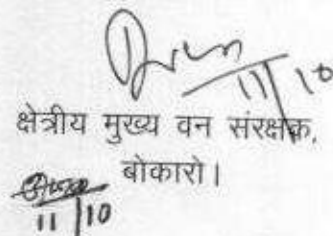 11/10
क्षेत्रीय मुख्य वन संरक्षक,
बोकारो।
11/10